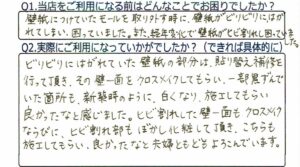 Q1.当店をご利用になる前はどんなことでお困りでしたか？
壁紙につけていたモールを取り外す時に、壁紙がビリビリにはが
れてしまい、困っていました。また、経年変化で壁紙がヒビ割れし困っていました。
Q2.実際にご利用になっていかがでしたか？（できれば具体的に）
ビリビリにはがれていた壁紙の部分は、貼り替え補修を
行って頂き、その壁一面をクロスメイクしてもらい、一部黒ずんで
いた箇所も、新築時のように、白くなり、施工してもらい
良かったなと感じました。ヒビ割れした壁一面もクロスメイク
ならびに、ヒビ割れ部もぼかし化粧して頂き、こちらも
施工してもらい、良かったなと夫婦ともどもよろこんでいます。